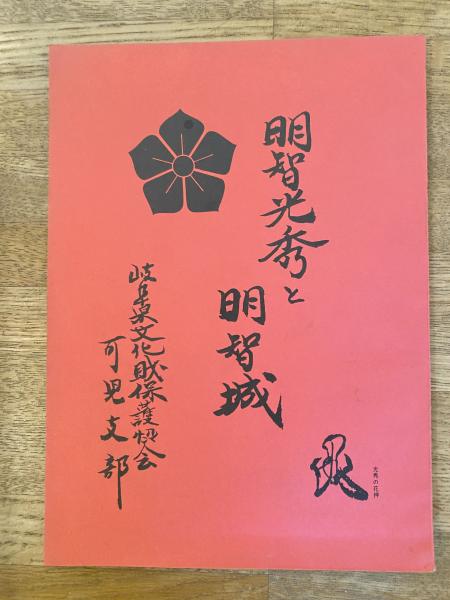 明智光秀と
明智城
光秀の花押
岐阜県文化財保護協会
可児支部